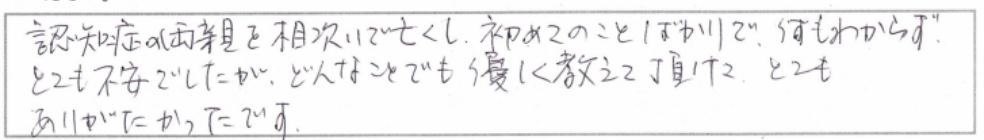 認知症の両親を相次いで亡くし、初めてのことばかりで、何もわからず、
とても不安でしたが、どんなことでも優しく教えて頂けて、とても
ありがたかったです。